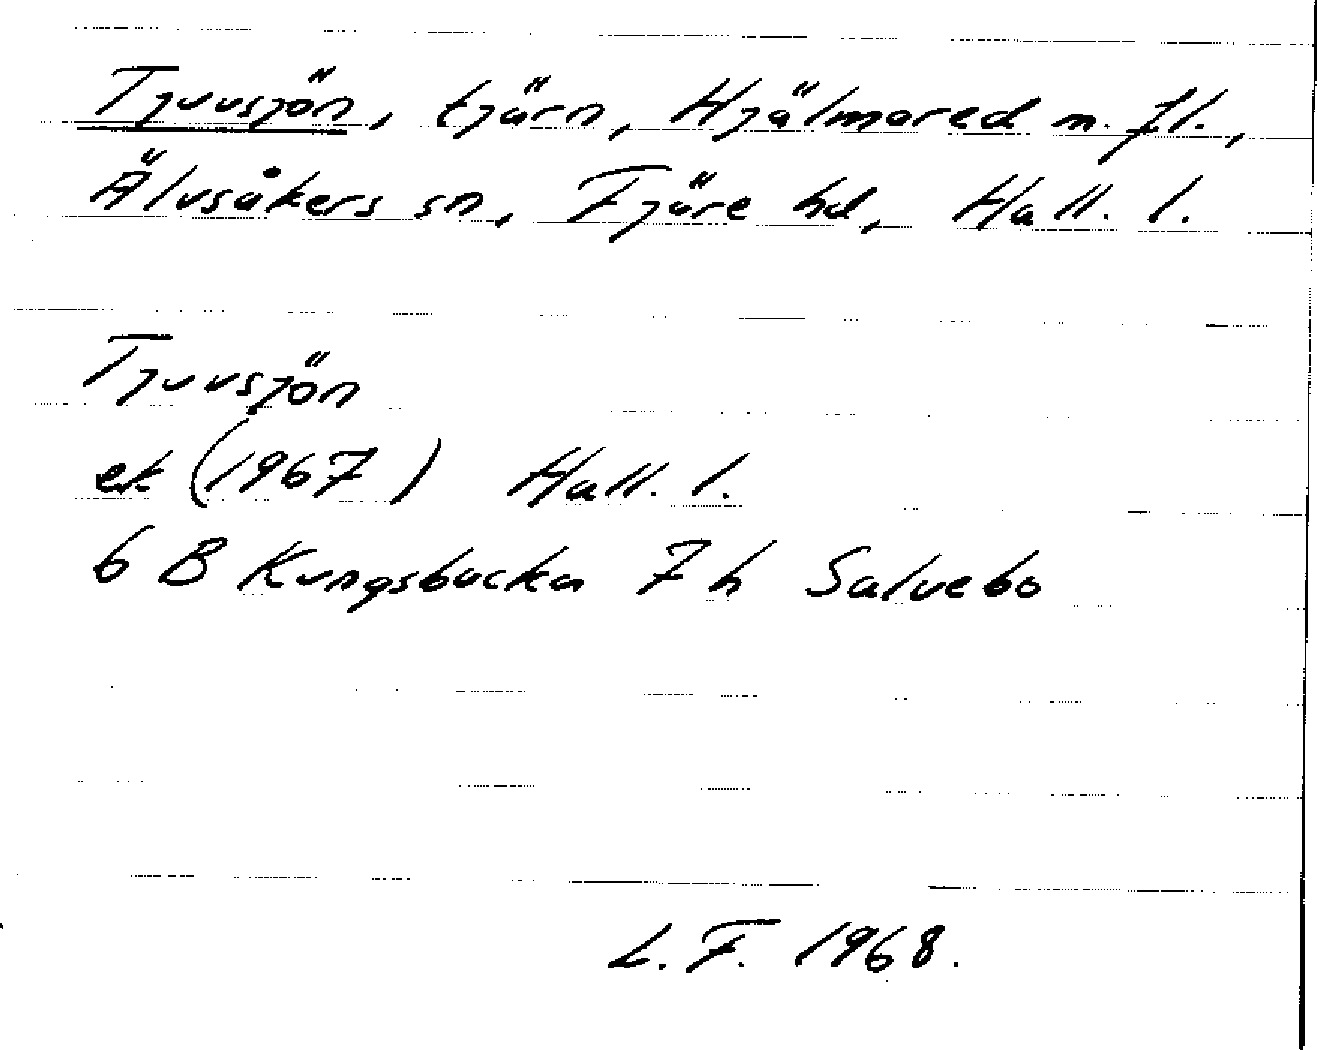 Tjuvsjön, tjärn, Hjälmared m. fl.,
Älvsåkers sn, Fjäre hd, Hall. l.
Tjuvsjön
ek (1967) Hall. l.
6 B Kungsbacka 7 h Salvebo
L. F. 1968.